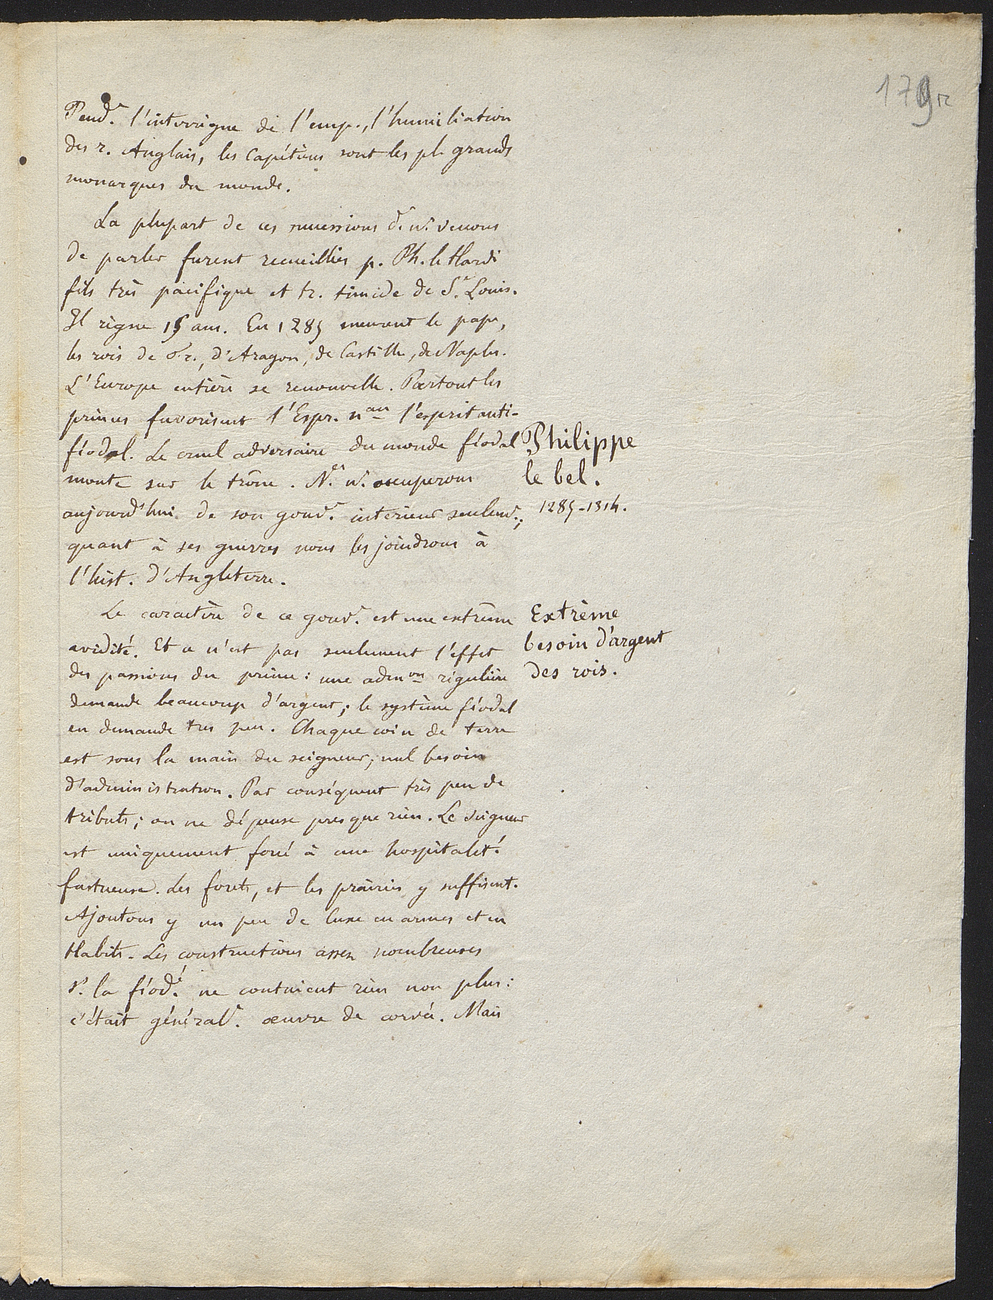 179r
Pend.t l'interrègne de l'emp., l'humiliation
des r. Anglais, les Capétiens sont les pl. grands
monarques du monde.
La plupart de ces successions d.t n.s venons
de parler furent recueillies p. Ph. le Hardi
fils très pacifique et tr. timide de S.t Louis.
Il règne 15 ans. En 1285 meurent le pape,
les rois de Fr., d'Aragon, de Castille, de Naples.
L'Europe entière se renouvelle. Partout les
princes favorisent l'Espr. nau l'esprit anti-
féodal. Le cruel adversaire du monde féodal
monte sur le trône. N.s n.s occuperons
aujourd'hui de son gouv.t intérieur seulem.t;
quant à ses guerres nous les joindrons à
l'hist. d'Angleterre.
Philippe
le bel.
1285-1314.
Le caractère de ce gouv.t est une extrême
avidité. Et ce n'est pas seulement l'effet
des passions du prince: une admon régulière
demande beaucoup d'argent; le système féodal
en demande très peu. Chaque coin de terre
est sous la main du seigneur; nul besoin
d'administration. Par conséquent très peu de
tributs; on ne dépense presque rien. Le seigneur
est uniquement forcé à une hospitalité
fastueuse. Les forets, et les prairies y suffisent.
Ajoutons y un peu de luxe en armes et en
Habits. Les constructions assez nombreuses
p.r la féod.é ne coutaient rien non plus:
c'était général.t œuvre de corvée. Mais
Extrème
besoin d'argent
des rois.